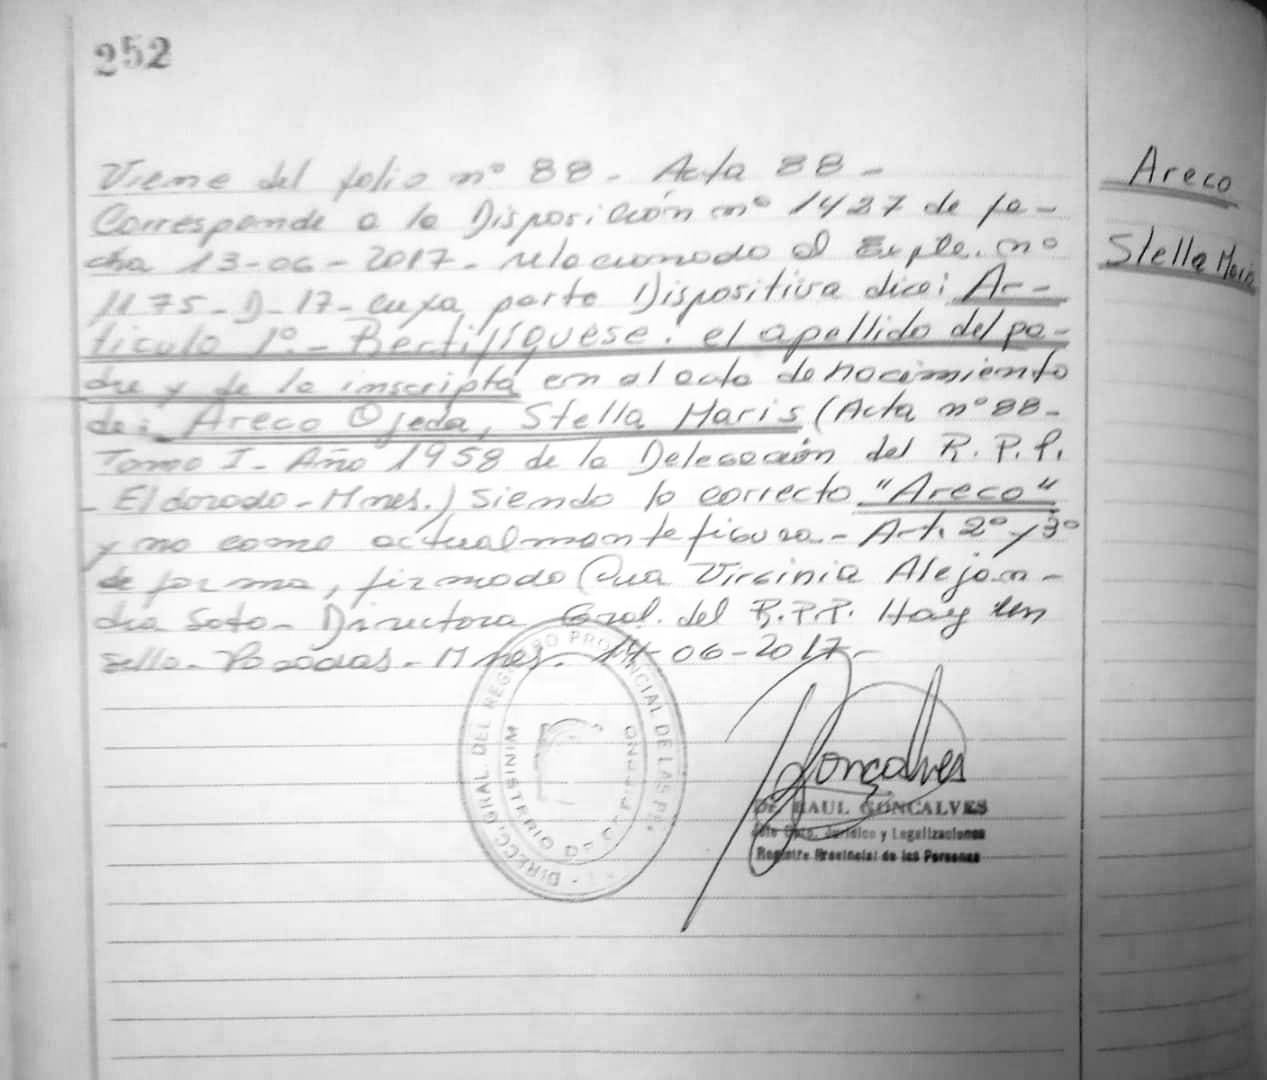 252
Viene del folio nº 88 - Acta 88 -
Corresponde a la Disposición nº 1427 de fe-
cha 13-06-2017- relacionado al Expte. nº
1175-D-17- cuya parte Dispositiva dice: Ar-
ticulo 1º.- Rectifíquese: el apellido del pa-
dre y de la inscripta en el acta de nacimiento
de: Areco Ojeda, Stella Maris (Acta nº 88-
Tomo I- Año 1958 de la Delegación del R.P.P.
- Eldorado - Mnes.) siendo lo correcto "Areco"
y no como actualmente figura - Art. 2º y 3º
de forma, firmado Dra Virginia Alejan-
dra Soto - Directora Gral. del R.P.P. Hay un
sello - Posadas - Mnes. 14-06-2017.-
Areco
Stella Maris
DIRECC. GRAL. DEL REGISTRO PROVINCIAL DE LAS PE
MINISTERIO DE
Goncalves
Dr. RAUL GONCALVES
Jurídico y Legalizaciones
Registro Provincial de las Personas